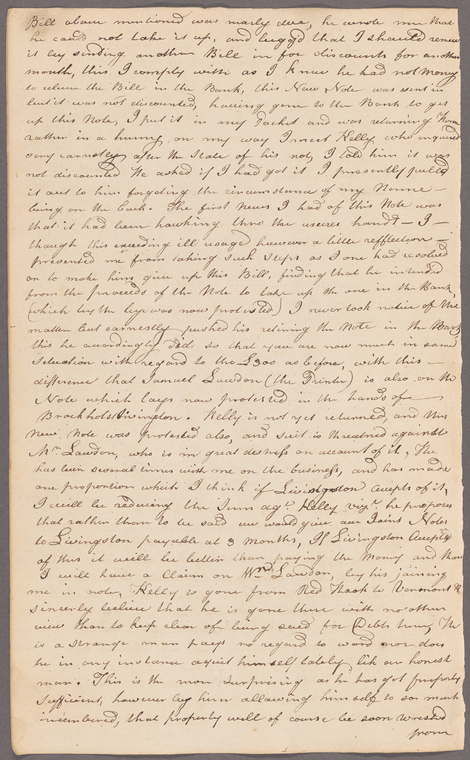 Bill above mentioned was nearly due, he wrote me that
he could not take it up, and begg'd that I should renew
it by sending another Bill in for discounts for another
month, this I comply with as I knew he had not Money
to relieve the Bill in the Bank, this New Note was sent in
but it was not discounted, having gone to the Bank to get
up this Note, I put it in my Pocket and was returning Home
rather in a hurry, on my way I meet Kelly who inquired
very earnestly after the State of his not, I told him it was
not discounted He asked if I had got it I presently pulled
it out to him forgeting the circumstance of my Name
being on the back. The first News I had of this Note was
that it had been hawking thro the usurers hands — I —
though this exceeding ill usage however a little refflection —
prevented me from taking such Steps as I one had resolved
on to make him give up this Bill, finding that he intended
from the proceeds of the Note to take up the one in the Bank,
(which by the bye was now protested) I never took notice of the
matter but earnestly pushed his retiring the Note in the Bank
this he accordingly did so that you are now much in same
Situation with regard to the £300 as before, with this
difference that Samuel Lawdon (the Printer) is also on the
Note which lays now protested in the hands of
Brockholst Livingston. Kelly is not yet returned, and this
New Note was protested also, and suit is threatned against
Mr Lawdon, who is in great distress on account of it, He
has been several times with me on the business, and has made
one proportion which I think if Livingston accepts of it,
I will be reducing the Sum agt Kelly vizt. he proposes
that rather than to be sued we would give our Joint Notes
to Livingston payable at 3 months, If Livingston accepts
of this it will be better than paying the Money and then
I will have a Claim on Wm Lawdon, by his joining
me in note, Kelly is gone from Red Hook to Vermont &
sincerly believe that he is gone there with no other
view than to keep clear of being sued for Debts here, He
is a strange man pays no regard to word nor does
he in any instance acquit himself lately like an honest
man. This is the more surprising as he has got property
sufficient, however by him allowing himself to so much
incumbered, that property will of course be soon wrested
from